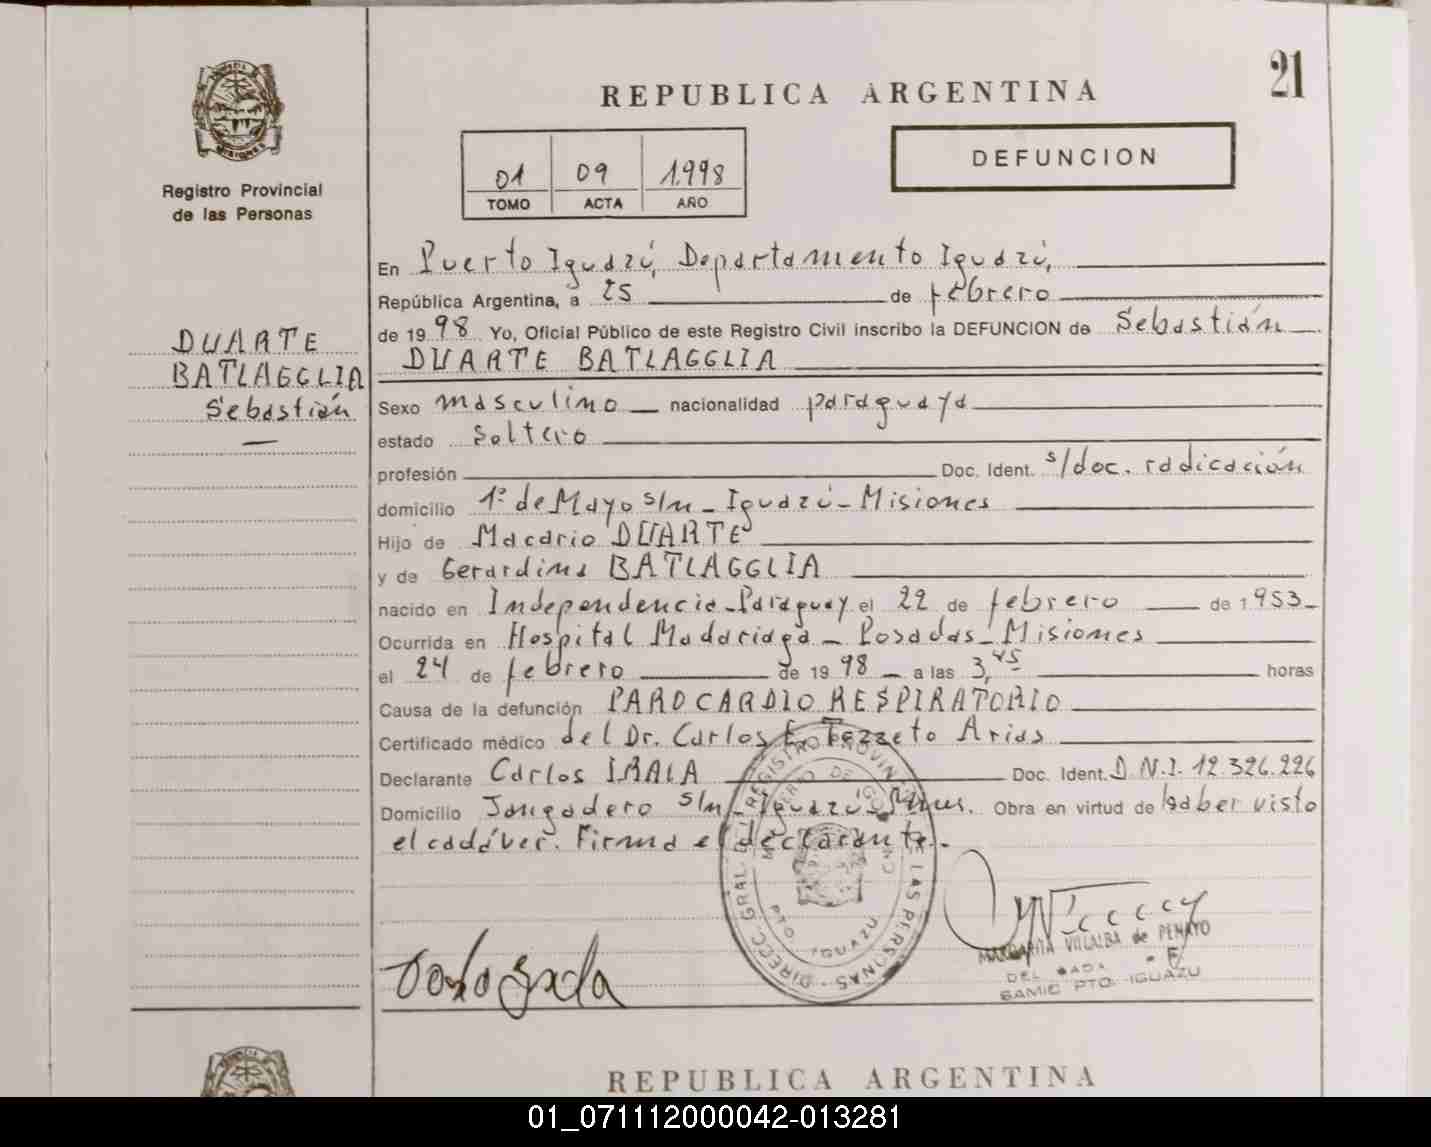 21
REPUBLICA ARGENTINA
MISIONES
Registro Provincial
de las Personas
01 09 1.998
TOMO ACTA AÑO
DEFUNCION
DUARTE
BATLAGGLIA
Sebastián
En Puerto Iguazú, Departamento Iguazú,
República Argentina, a 25 de febrero
de 1998 Yo, Oficial Público de este Registro Civil inscribo la DEFUNCION de Sebastián
DUARTE BATLAGGLIA
Sexo masculino nacionalidad paraguaya
estado Soltero
profesión Doc. Ident. s/doc. radicación
domicilio 1º de Mayo s/n - Iguazú - Misiones
Hijo de Macario DUARTE
y de Gerardina BATLAGGLIA
nacido en Independencia - Paraguay el 22 de febrero de 1953
Ocurrida en Hospital Madariaga - Posadas - Misiones
el 24 de febrero de 1998 a las 3,45 horas
Causa de la defunción PARO CARDIO RESPIRATORIO
Certificado médico del Dr. Carlos E. Arias
Declarante Carlos IRALA Doc. Ident. D.N.I. 12.326.226
Domicilio Jangadero s/n - Iguazú - Mnes. Obra en virtud de haber visto
el cadáver. Firma el declarante.
DIRECC. GRAL. DEL REGISTRO PROVINCIAL DE LAS PERSONAS
PTO. IGUAZU
MARGARITA VILLALBA de PENAYO
SAMIC PTO. IGUAZU
REPUBLICA ARGENTINA
01_071112000042-013281